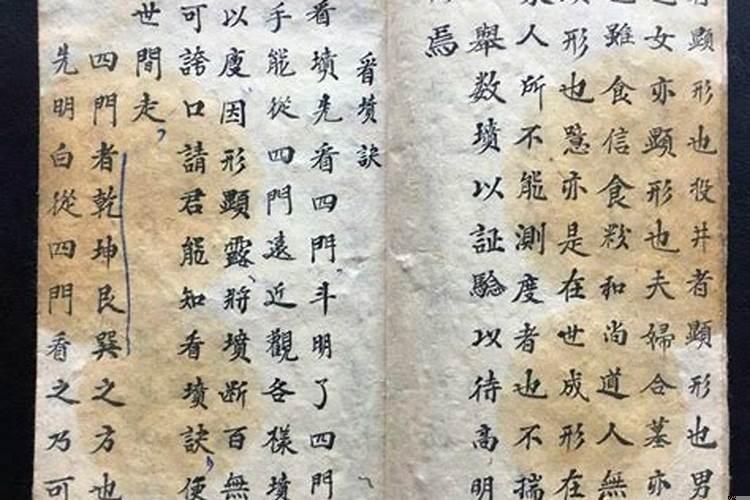 顯形也投井者顯形也男
女亦顯形也夫婦合墓亦
也雖食信食和尚道人無
形也亦是在世成形在
人所不能測度者也不揣
舉数墳以証驗以待高明
焉
看墳訣
看墳先看四門斗明了四門
手能從四門遠近觀各樣墳
以度因形顯露將墳断百無
可誇口請君能知看墳訣便
世間走
四門者乾坤艮巽之方也
先明白從四門看之乃可